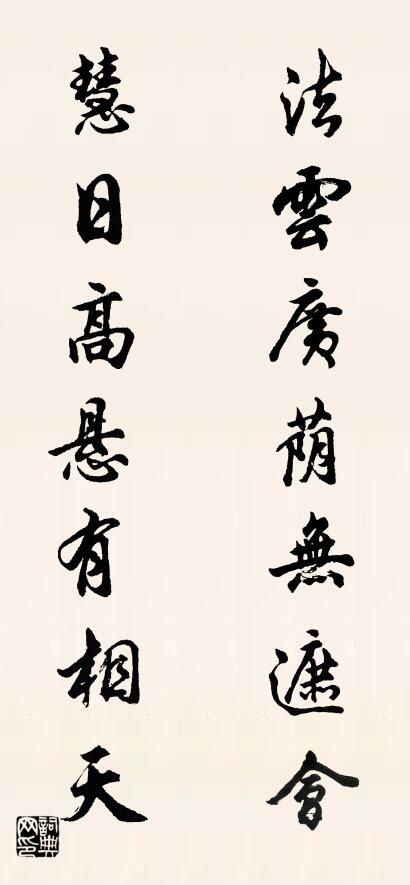 法雲廣蔭無遮會
慧日高懸有相天
詞典网印